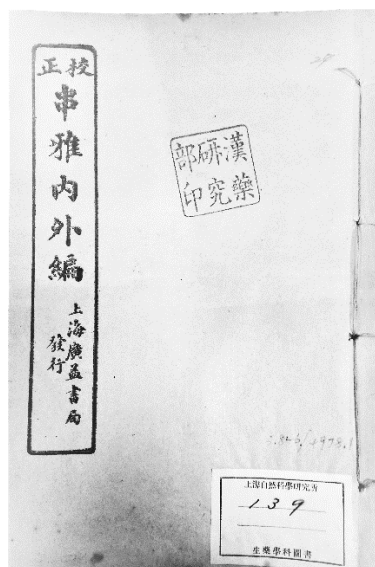 校正
串雅內外編
上海廣益書局
發行
漢藥
研究
部印
上海自然科學研究所
139
生藥學科圖書